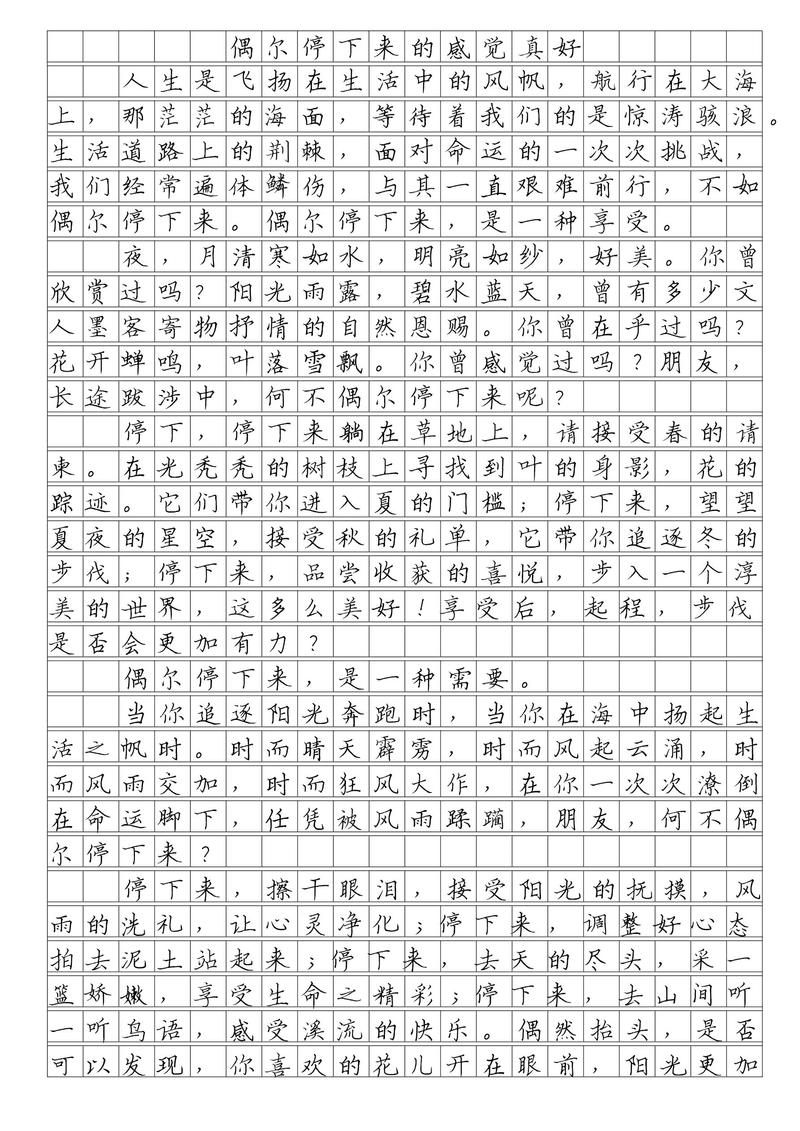 偶尔停下来的感觉真好
人生是飞扬在生活中的风帆，航行在大海
上，那茫茫的海面，等待着我们的是惊涛骇浪。
生活道路上的荆棘，面对命运的一次次挑战，
我们经常遍体鳞伤，与其一直艰难前行，不如
偶尔停下来。偶尔停下来，是一种享受。
夜，月清寒如水，明亮如纱，好美。你曾
欣赏过吗？阳光雨露，碧水蓝天，曾有多少文
人墨客寄物抒情的自然恩赐。你曾在乎过吗？
花开蝉鸣，叶落雪飘。你曾感觉过吗？朋友，
长途跋涉中，何不偶尔停下来呢？
停下，停下来躺在草地上，请接受春的请
柬。在光秃秃的树枝上寻找到叶的身影，花的
踪迹。它们带你进入夏的门槛；停下来，望望
夏夜的星空，接受秋的礼单，它带你追逐冬的
步伐；停下来，品尝收获的喜悦，步入一个淳
美的世界，这多么美好！享受后，起程，步伐
是否会更加有力？
偶尔停下来，是一种需要。
当你追逐阳光奔跑时，当你在海中扬起生
活之帆时。时而晴天霹雳，时而风起云涌，时
而风雨交加，时而狂风大作，在你一次次潦倒
在命运脚下，任凭被风雨蹂躏，朋友，何不偶
尔停下来？
停下来，擦干眼泪，接受阳光的抚摸，风
雨的洗礼，让心灵净化；停下来，调整好心态
拍去泥土站起来；停下来，去天的尽头，采一
篮娇嫩，享受生命之精彩；停下来，去山间听
一听鸟语，感受溪流的快乐。偶然抬头，是否
可以发现，你喜欢的花儿开在眼前，阳光更加